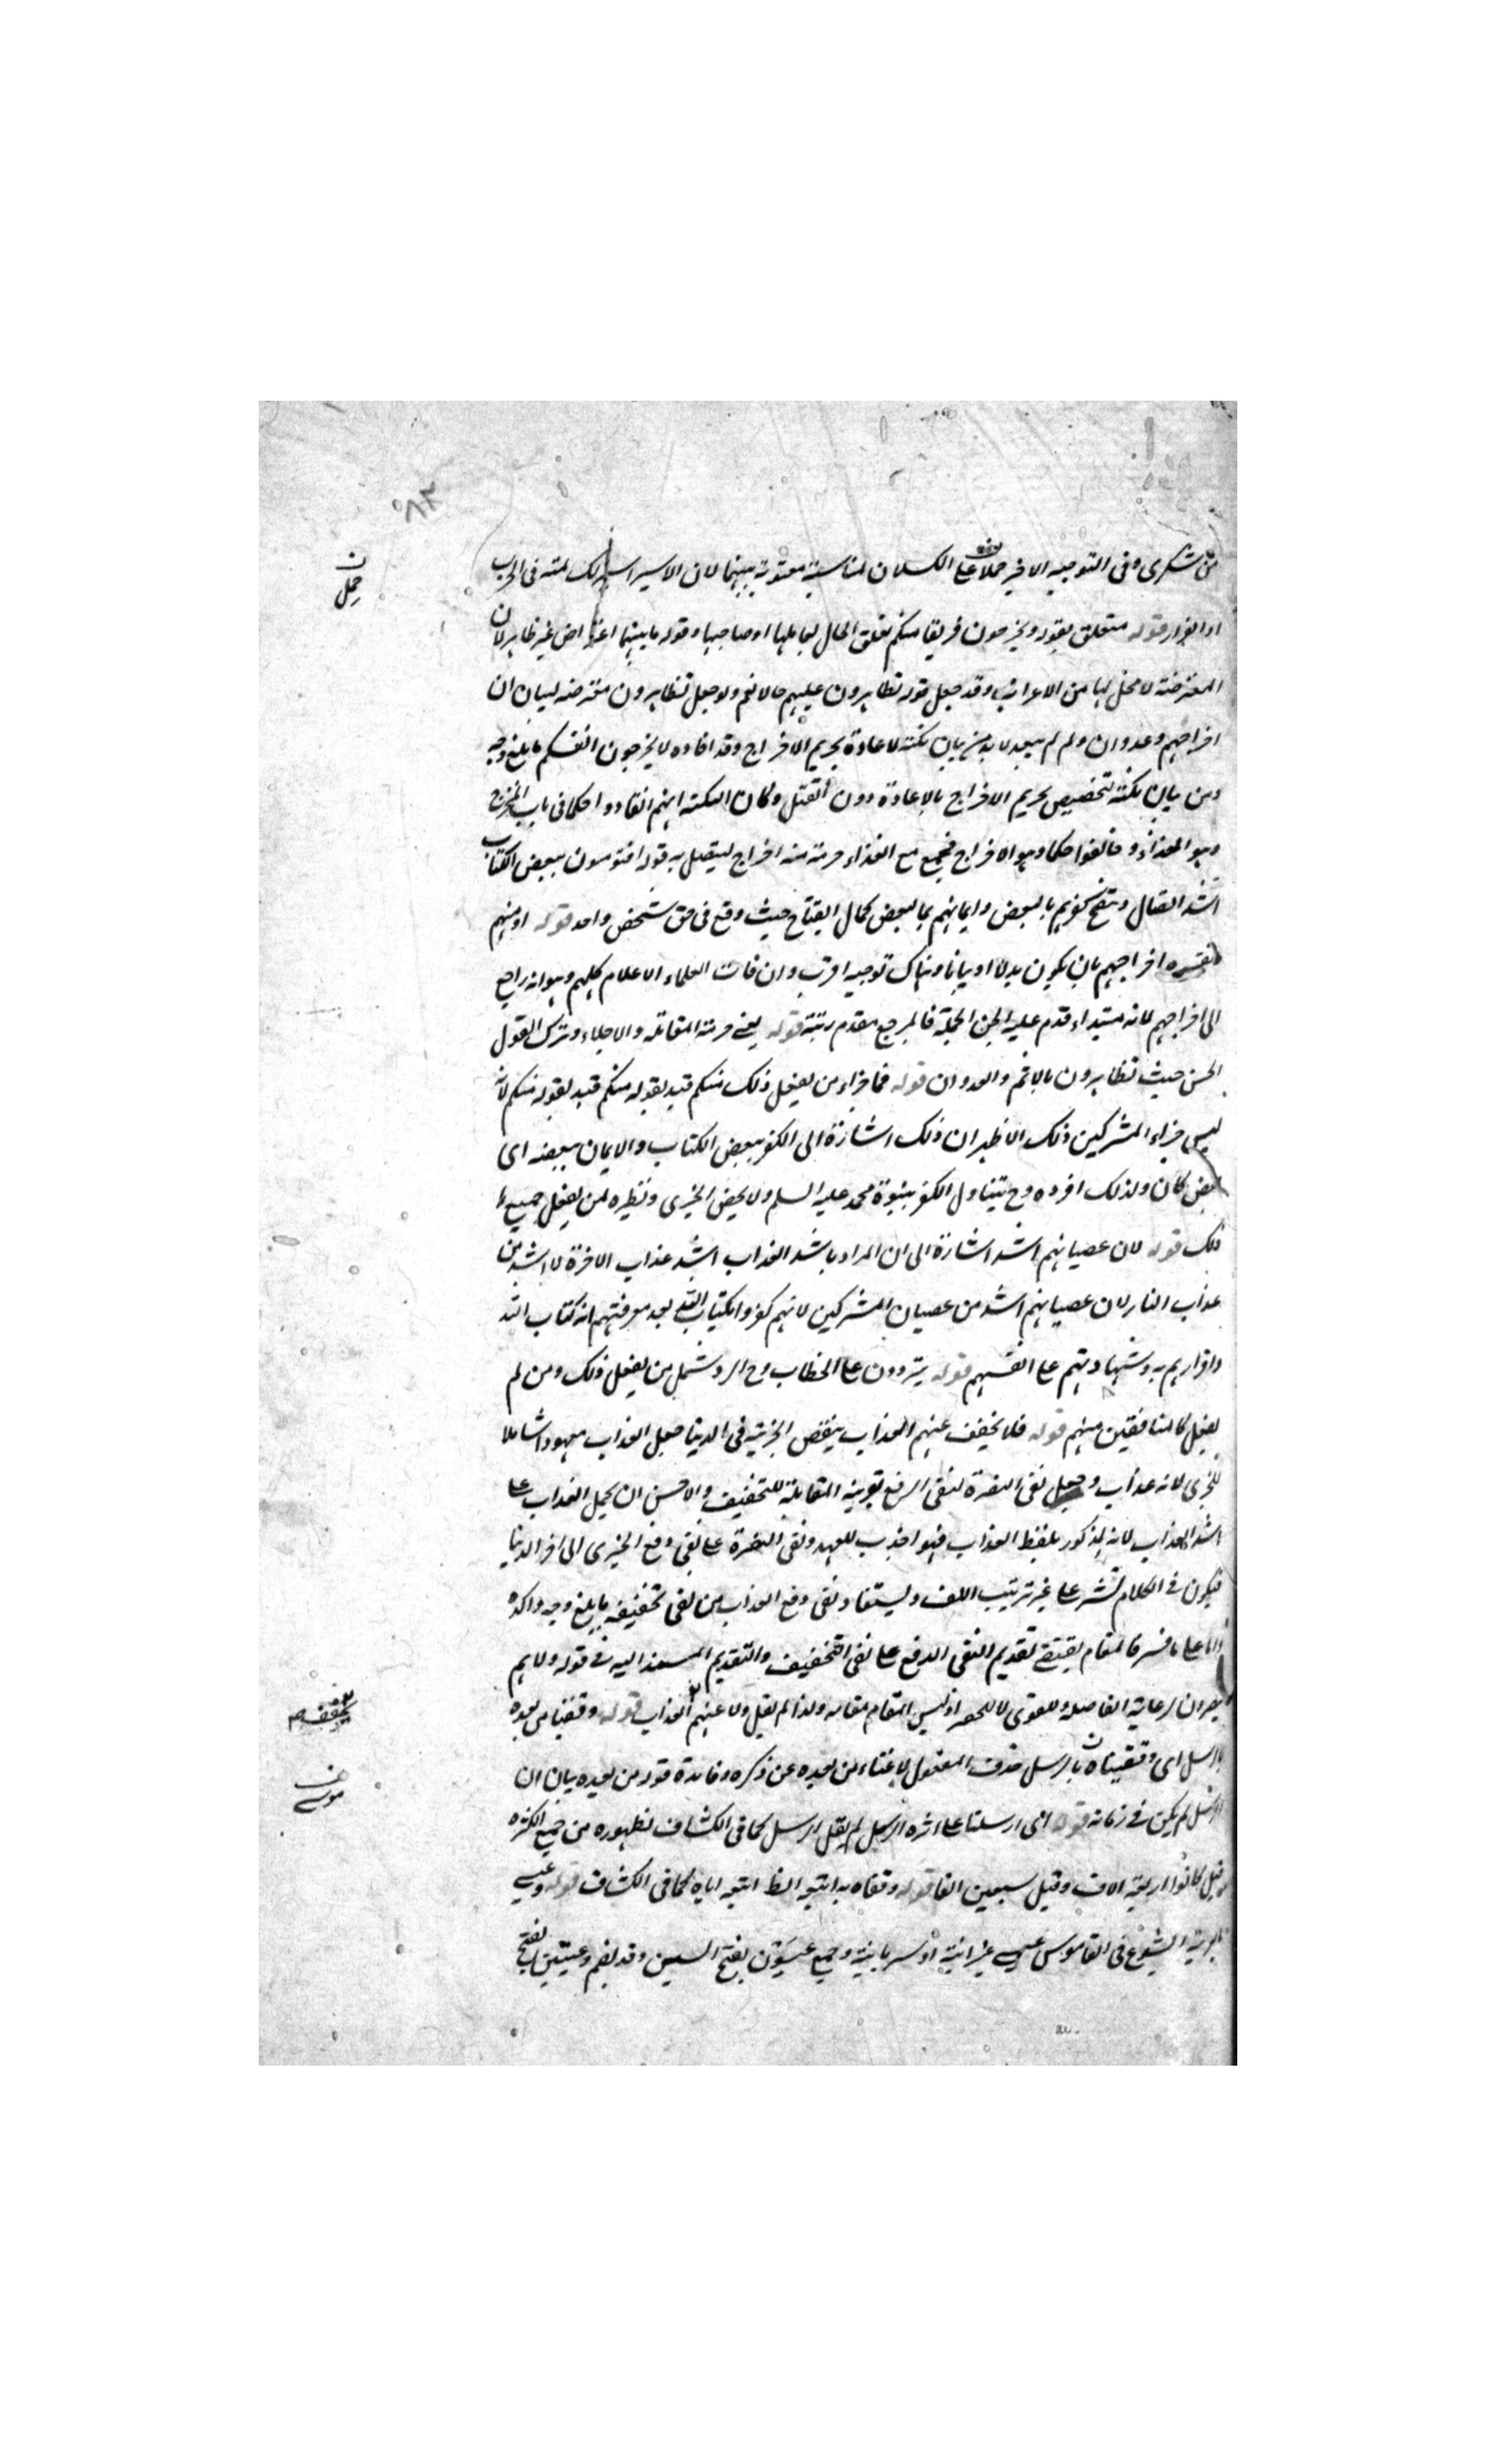 من شكرى وفى التوجيه الاخير حملا على الكسلان لمناسبة معنوية بينهما لان الاسير اسير لك لمته فى الحرب
او الفرار قوله متعلق بقوله ويخرجون فريقا منكم تعلق الحال بعاملها او صاحبها وقوله ما بينهما اعتراض غير ظاهر لان
المعترضة لا محل لها من الاعراب وقد جعل قوله تظاهرون عليهم حالا نعم ولو جعل تظاهرون معترضه لبيان ان
اخراجهم وعدوان ولم لم يبعد لا بد من بيان نكتة لاعادة تحريم الاخراج وقد افاده لا يخرجون انفسكم بابلغ وجه
ومن بيان نكتة تخصيص تحريم الاخراج بالاعادة دون القتل وكان النكتة انهم انقادوا حكما فى باب المخرج
وهو الفداء وخالفوا حكما وهو الاخراج فجمع مع الفداء حرمة اخراج ليتصل به قوله افتؤمنون ببعض الكتاب
اشد اتصال ويتضح كفرهم بالبعض وايمانهم بالبعض كمال ايضاح حيث وقع فى حق شخص واحد قوله او مبهم
تفسيره اخراجهم بان يكون بدلا او بيانا وهناك توجيه اقرب وان فات العلماء الاعلام كلهم وهو انه راجع
الى اخراجهم لانه مبتداء قدم عليه الجملة فالمرجع مقدم رتبة قوله يعنى حرمة المقاتله والاجلاء وترك القول
الحسن حيث تظاهرون بالاثم والعدوان قوله فما جزاء من يفعل ذلك منكم قيد بقوله منكم لانه
ليس جزاء المشركين ذلك الاظهر ان ذلك اشارة الى الكفر ببعض الكتاب والايمان ببعضه اى
بعض كان ولذلك افرده وح يتناول الكفر بنبوة محمد عليه السلم ولا يخص الخزى ونظيره لمن يفعل جميع
ذلك قوله لان عصيانهم اشد اشارة الى ان المراد باشد العذاب اشد عذاب الاخرة لا اشد من
عذاب النار لان عصيانهم اشد من عصيان المشركين لانهم كفروا بكتاب الله بعد معرفتهم انه كتاب الله
واقرارهم به وشهادتهم على انفسهم قوله يردون على الخطاب وح الرد شمل من يفعل ذلك ومن لم
يفعل كالمنافقين منهم قوله فلا يخفف عنهم العذاب بنقص الجزية فى الدنيا جعل العذاب معهودا شاملا
للخزى لانه عذاب وجعل نفى النصرة لنفى الدفع بقرينة المقابلة للتخفيف والاحسن ان يحمل العذاب على
اشد العذاب لانه المذكور بلفظ العذاب فهو اجذب للعهد ونفى النصرة على نفى دفع الخزى الى اخر الدنيا
فيكون فى الكلام نشر على غير ترتيب اللف وليستفاد نفى دفع العذاب من نفى تخفيفه بابلغ وجه واكده
واما على ما فسر فالمقام يقتضى تقديم النفى الدفع على نفى التخفيف والتقديم المسند اليه فى قوله ولا هم
ينصرون لرعاية الفاصلة وللتقوى لا للحصر اذ ليس المقام مقامه ولذا لم يقل ولا عنهم العذاب قوله وقفينا من بعده
بالرسل اى وقفيناه بالرسل حذف المفعول لاغناء من بعده عن ذكره وفائدة قوله من بعده بيان ان
الرسل لم يكن فى زمانه قوله اى ارسلنا على اثره الرسل لم يقل ارسل كما فى الكشاف لظهوره من جمع الكثرة
وقيل كانوا اربعة الاف وقيل سبعين الفا قوله وقفاه به اتبعه الظ اتبعه اياه كما فى الكشاف قوله وعيسى
بالعبرية ايشوع فى القاموس عيسى عبرانية او سريانية وجمع عيسون بفتح السين وقد يضم وعيسين بفتح
حمل ن
يخفف
موسى